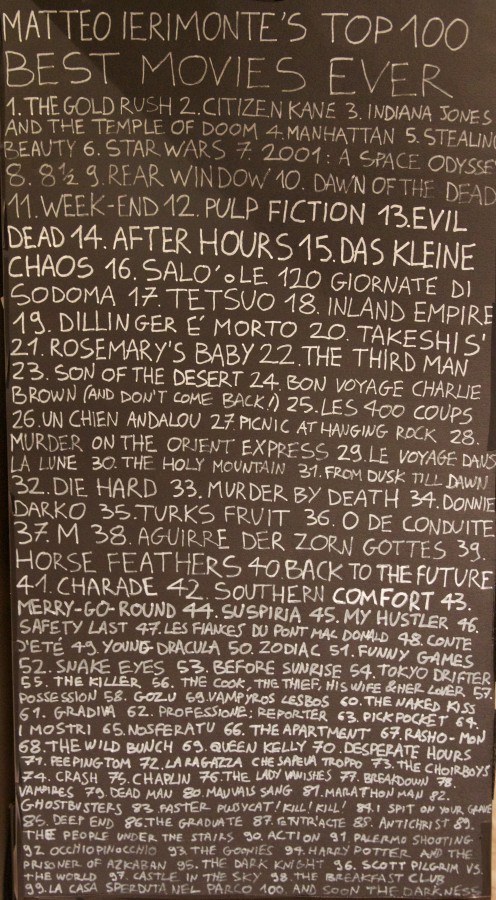 MATTEO IERIMONTE'S TOP 100
BEST MOVIES EVER
1. THE GOLD RUSH 2. CITIZEN KANE 3. INDIANA JONES
AND THE TEMPLE OF DOOM 4. MANHATTAN 5. STEALING
BEAUTY 6. STAR WARS 7. 2001: A SPACE ODYSSE
8. 8½ 9. REAR WINDOW 10. DAWN OF THE DEAD
11. WEEK-END 12. PULP FICTION 13. EVIL
DEAD 14. AFTER HOURS 15. DAS KLEINE
CHAOS 16. SALO' o LE 120 GIORNATE DI
SODOMA 17. TETSUO 18. INLAND EMPIRE
19. DILLINGER E' MORTO 20. TAKESHIS'
21. ROSEMARY'S BABY 22. THE THIRD MAN
23. SON OF THE DESERT 24. BON VOYAGE CHARLIE
BROWN (AND DON'T COME BACK!) 25. LES 400 COUPS
26. UN CHIEN ANDALOU 27 PICNIC AT HANGING ROCK 28.
MURDER ON THE ORIENT EXPRESS 29. LE VOYAGE DANS
LA LUNE 30. THE HOLY MOUNTAIN 31. FROM DUSK TILL DAWN
32. DIE HARD 33. MURDER BY DEATH 34. DONNIE
DARKO 35. TURKS FRUIT 36. O DE CONDUITE
37. M 38. AGUIRRE DER ZORN GOTTES 39.
HORSE FEATHERS 40. BACK TO THE FUTURE
41. CHARADE 42. SOUTHERN COMFORT 43.
MERRY-GO-ROUND 44. SUSPIRIA 45. MY HUSTLER 46.
SAFETY LAST 47. LES FIANCES DU PONT MAC DONALD 48. CONTE
D'ETÉ 49. YOUNG DRACULA 50. ZODIAC 51. FUNNY GAMES
52. SNAKE EYES 53. BEFORE SUNRISE 54. TOKYO DRIFTER
55. THE KILLER 56. THE COOK, THE THIEF, HIS WIFE & HER LOVER 57.
POSSESSION 58. GOZU 59. VAMPYROS LESBOS 60. THE NAKED KISS
61. GRADIVA 62. PROFESSIONE: REPORTER 63. PICKPOCKET 64.
I MOSTRI 65. NOSFERATU 66. THE APARTMENT 67. RASHO-MON
68. THE WILD BUNCH 69. QUEEN KELLY 70. DESPERATE HOURS
71. PEEPING TOM 72. LA RAGAZZA CHE SAPEVA TROPPO 73. THE CHOIRBOYS
74. CRASH 75. CHAPLIN 76. THE LADY VANISHES 77. BREAKDOWN 78.
VAMPIRES 79. DEAD MAN 80. MAUVAIS SANG 81. MARATHON MAN 82.
GHOSTBUSTERS 83. FASTER PUSSYCAT! KILL! KILL! 84. I SPIT ON YOUR GRAVE
85. DEEP END 86. THE GRADUATE 87. ENTR'ACTE 88. ANTICHRIST 89.
THE PEOPLE UNDER THE STAIRS 90. ACTION 91 PALERMO SHOOTING
92 OCCHIOPINOCCHIO 93 THE GOONIES 94. HARRY POTTER AND THE
PRISONER OF AZKABAN 95. THE DARK KNIGHT 96. SCOTT PILGRIM VS.
THE WORLD 97. CASTLE IN THE SKY 98. THE BREAKFAST CLUB
99. LA CASA SPERDUTA NEL PARCO 100. AND SOON THE DARKNESS